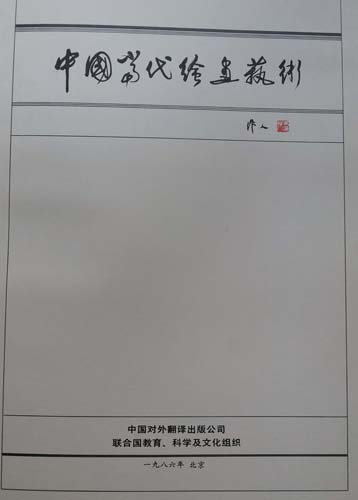 中國當代绘畫藝術
作人
中国对外翻译出版公司
联合国教育、科学及文化组织
一九八六年 北京